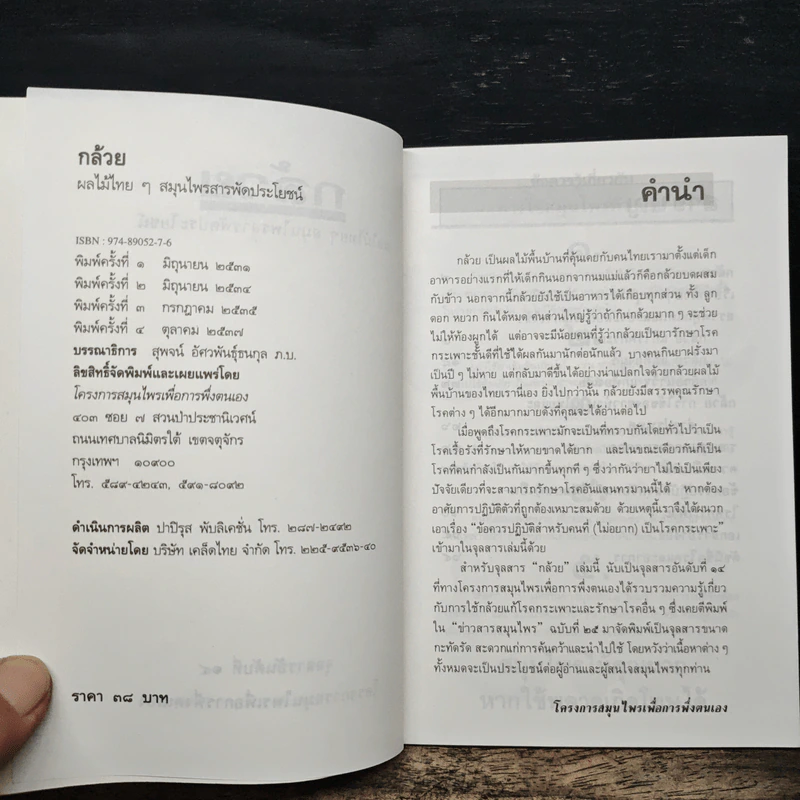 กล้วย
ผลไม้ไทย ๆ สมุนไพรสารพัดประโยชน์
ISBN : 974-89052-7-6
พิมพ์ครั้งที่ ๑ มิถุนายน ๒๕๓๑
พิมพ์ครั้งที่ ๒ มิถุนายน ๒๕๓๔
พิมพ์ครั้งที่ ๓ กรกฎาคม ๒๕๓๕
พิมพ์ครั้งที่ ๔ ตุลาคม ๒๕๓๗
บรรณาธิการ สุพจน์ อัศวพันธุ์ธนกุล ภ.บ.
ลิขสิทธิ์จัดพิมพ์และเผยแพร่โดย
โครงการสมุนไพรเพื่อการพึ่งตนเอง
๔๐๓ ซอย ๗ สวนป่าประชานิเวศน์
ถนนเทศบาลนิมิตรใต้ เขตจตุจักร
กรุงเทพฯ ๑๐๙๐๐
โทร. ๕๘๙-๔๒๔๓, ๕๙๑-๘๐๙๒
ดำเนินการผลิต ปาปิรุส พับลิเคชั่น โทร. ๒๘๗-๒๔๙๒
จัดจำหน่ายโดย บริษัท เคล็ดไทย จำกัด โทร. ๒๒๕-๙๕๓๖-๔๐
ราคา ๓๘ บาท
คำนำ
กล้วย เป็นผลไม้พื้นบ้านที่คุ้นเคยกับคนไทยเรามาตั้งแต่เด็ก
อาหารอย่างแรกที่ให้เด็กกินนอกจากนมแม่แล้วก็คือกล้วยบดผสม
กับข้าว นอกจากนี้กล้วยยังใช้เป็นอาหารได้เกือบทุกส่วน ทั้ง ลูก
ดอก หยวก กินได้หมด คนส่วนใหญ่รู้ว่าถ้ากินกล้วยมาก ๆ จะช่วย
ไม่ให้ท้องผูกได้ แต่อาจจะมีน้อยคนที่รู้ว่ากล้วยเป็นยารักษาโรค
กระเพาะชั้นดีที่ใช้ได้ผลกันมานักต่อนักแล้ว บางคนกินยาฝรั่งมา
เป็นปี ๆ ไม่หาย แต่กลับมาดีขึ้นได้อย่างน่าแปลกใจด้วยกล้วยผลไม้
พื้นบ้านของไทยเรานี่เอง ยิ่งไปกว่านั้น กล้วยยังมีสรรพคุณรักษา
โรคต่าง ๆ ได้อีกมากมายดังที่คุณจะได้อ่านต่อไป
เมื่อพูดถึงโรคกระเพาะมักจะเป็นที่ทราบกันโดยทั่วไปว่าเป็น
โรคเรื้อรังที่รักษาให้หายขาดได้ยาก และในขณะเดียวกันก็เป็น
โรคที่คนกำลังเป็นกันมากขึ้นทุกที ๆ ซึ่งว่ากันว่ายาไม่ใช่เป็นเพียง
ปัจจัยเดียวที่จะสามารถรักษาโรคอันแสนทรมานนี้ได้ หากต้อง
อาศัยการปฏิบัติตัวที่ถูกต้องเหมาะสมด้วย ด้วยเหตุนี้เราจึงได้ผนวก
เอาเรื่อง "ข้อควรปฏิบัติสำหรับคนที่ (ไม่อยาก) เป็นโรคกระเพาะ"
เข้ามาในจุลสารเล่มนี้ด้วย
สำหรับจุลสาร "กล้วย" เล่มนี้ นับเป็นจุลสารอันดับที่ ๑๔
ที่ทางโครงการสมุนไพรเพื่อการพึ่งตนเองได้รวบรวมความรู้เกี่ยว
กับการใช้กล้วยแก้โรคกระเพาะและรักษาโรคอื่น ๆ ซึ่งเคยตีพิมพ์
ใน "ข่าวสารสมุนไพร" ฉบับที่ ๒๕ มาจัดพิมพ์เป็นจุลสารขนาด
กะทัดรัด สะดวกแก่การค้นคว้าและนำไปใช้ โดยหวังว่าเนื้อหาต่าง ๆ
ทั้งหมดจะเป็นประโยชน์ต่อผู้อ่านและผู้สนใจสมุนไพรทุกท่าน
โครงการสมุนไพรเพื่อการพึ่งตนเอง